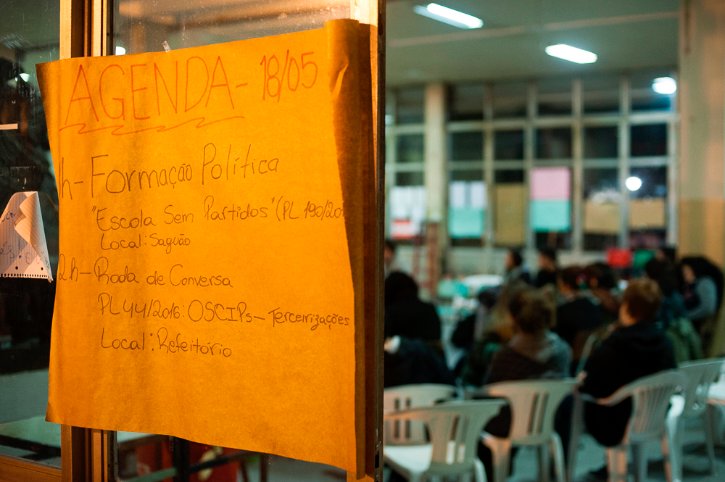 AGENDA- 18/05
h- Formação Política
"Escola Sem Partidos" (PL 190/201
Local: Saguão
2h- Roda de Conversa
PL 44/2016 OSCIPs- Terceirizações
Local: Refeitório